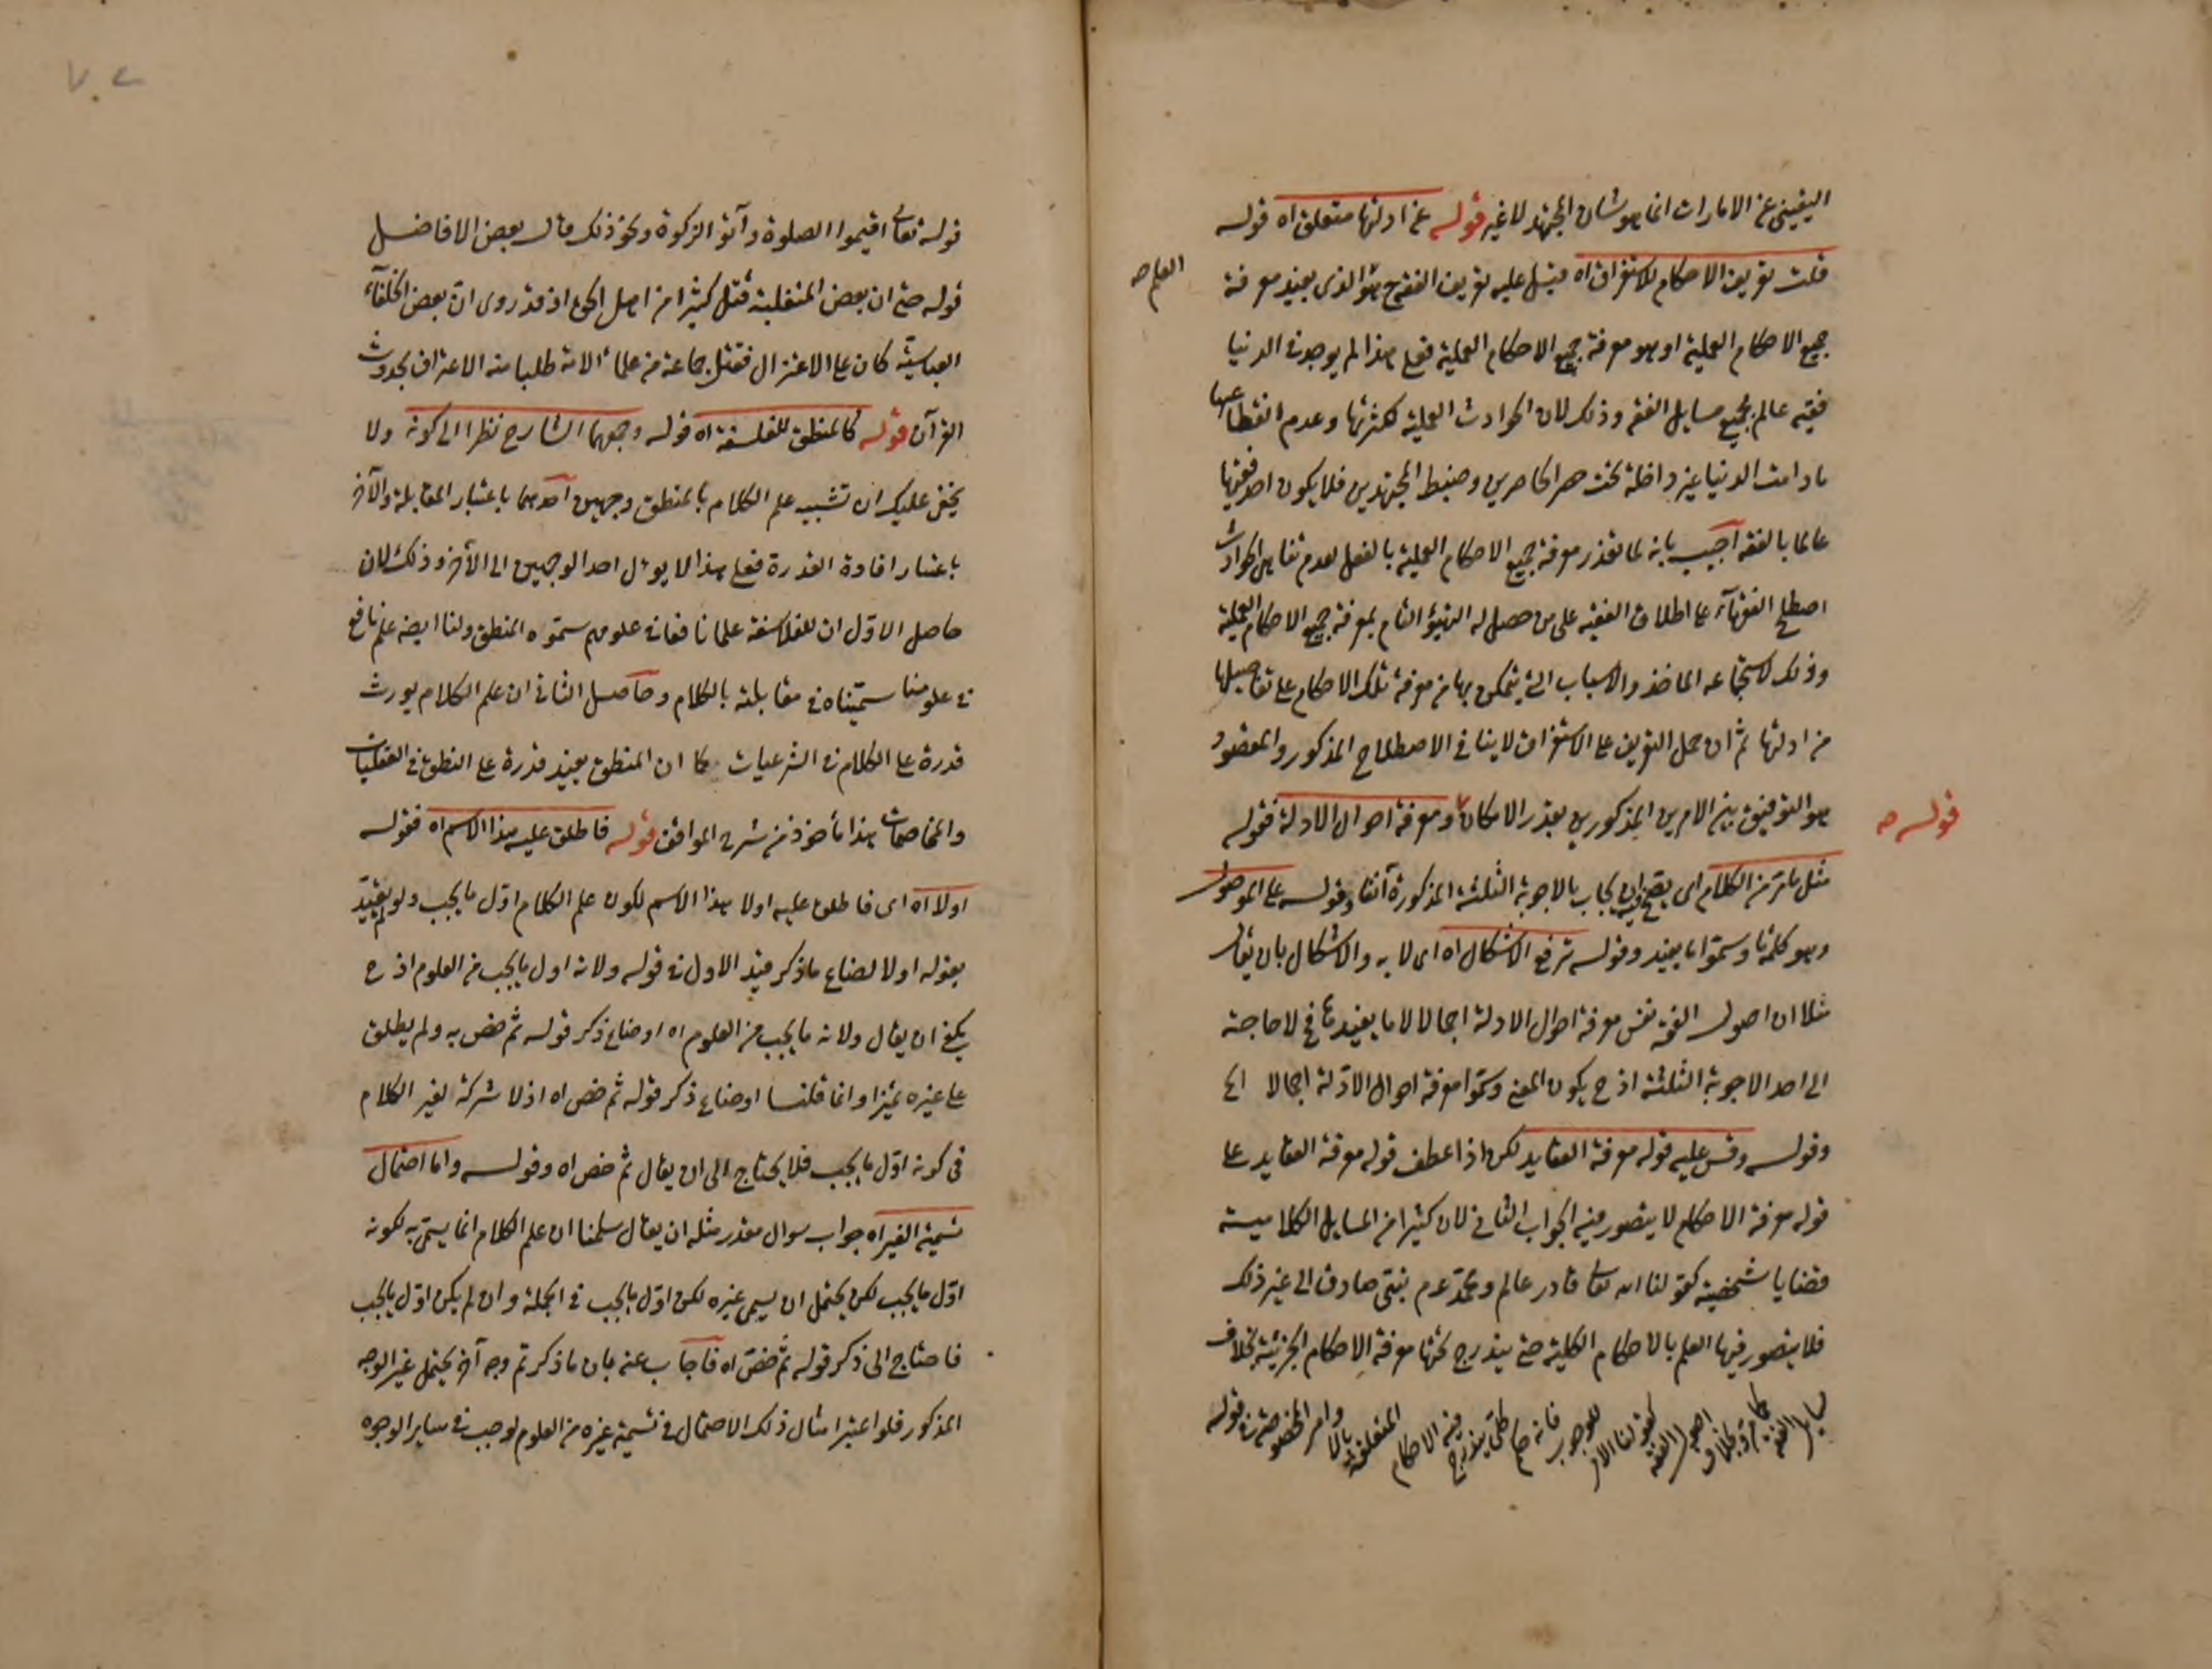 اليقيني عن الامارات انما هو شان المجتهد لا غير قوله عن ادلتها متعلق اه قوله
قلت تعريف الاحكام للاستغراق اه قيل عليه تعريف الفقه هو الذي يفيد معرفة
العلم صح
جميع الاحكام العملية او هو معرفة جميع الاحكام العملية فعلى هذا لم يوجد في الدنيا
فقيه عالم بجميع مسايل الفقه وذلك لان الحوادث العملية لكثرتها وعدم انقطاعها
ما دامت الدنيا غير داخلة تحت حصر الحاصرين وضبط المجتهدين فلا يكون احد
عالما بالفقه اجيب بانه لما تعذر معرفة جميع الاحكام العملية بالفعل لعدم تناهي الحوادث
اصطلح الفقهآء على اطلاق الفقيه على من حصل له التهيؤ التام بمعرفة جميع الاحكام العملية
وذلك لاستجماعه الماخذ والاسباب التي يتمكن بها من معرفة تلك الاحكام على تفاصيلها
من ادلتها ثم ان حمل التعريف على الاستغراق لا ينافي الاصطلاح المذكور والمقصود
هو التوفيق بين الامرين المذكورين بقدر الامكان ومعرفة احوال الادلة فقوله
قوله صح
مثل ما مر من الكلام اى يجاب بالاجوبة الثلثة المذكورة آنفا وقوله على الموصول
وهو كلمة ما وسموا ما يفيد وقوله ترفع الاشكال اه اى لا به والاشكال بان يقال
مثلا ان اصول الفقه نفس معرفة احوال الادلة اجمالا لا ما يفيدها فح لا حاجة
الى احد الاجوبة الثلثة اذ ح يكون المعنى وسموا معرفة احوال الادلة اجمالا الخ
وقوله وقس عليه قوله معرفة العقايد لكن اذا عطف قوله معرفة العقايد على
قوله معرفة الاحكام لا يتصور فيه الجواب الثاني لان كثيرا من المسايل الكلامية
قضايا شخصية كقولنا الله تعالى قادر عالم ومحمد عم نبي صادق الى غير ذلك
فلا يتصور فيها العلم بالاحكام الكلية حتى يندرج تحتها معرفة الاحكام الجزئية بخلاف
مسايل الفقه كما مر وبخلاف اصول الفقه كقولنا الامر للوجوب فانه كلي يندرج فيه الاحكام المتعلقة بالاوامر المخصوصة في قوله
قوله تعالى اقيموا الصلوة وآتوا الزكوة ونحو ذلك قال بعض الافاضل
قوله حتى ان بعض المتغلبة قتل كثيرا من اهل الحق اذ قد روى ان بعض الخلفآء
العباسية كان على الاعتزال فقتل جماعة من علماء الامة طلبا منه الاعتراف بحدوث
القرآن قوله كالمنطق للفلسفة اه قوله وجههما الشارح نظرا الى كونه ولا
يخفى عليك ان تشبيه علم الكلام بالمنطق وجهين احدهما باعتبار المقابلة والآخر
باعتبار افادة القدرة فعلى هذا لا يوئل احد الوجهين الى الآخر وذلك لان
حاصل الاول ان للفلاسفة علما نافعا في علومهم سموه المنطق ولنا ايضه علم نافع
في علومنا سميناه في مقابلته بالكلام وحاصل الثاني ان علم الكلام يورث
قدرة على الكلام في الشرعيات كما ان المنطق يفيد قدرة على النطق في العقليات
والمخاصمات هذا مأخوذ من شرح المواقف قوله فاطلق عليه هذا الاسم اه فقوله
اولا اه اى فاطلق عليه اولا هذا الاسم لكون علم الكلام اول ما يجب ولو لم يقيد
بقوله اولا لضاع ما ذكر قيد الاول في قوله ولانه اول ما يجب من العلوم اذ ح
يكفي ان يقال ولانه ما يجب من العلوم اه او ضاع ذكر قوله ثم خص به ولم يطلق
على غيره تميزا وانما قلنا او ضاع ذكر قوله ثم خص اه اذ لا شركة لغير الكلام
في كونه اول ما يجب فلا يحتاج الى ان يقال ثم خص اه وقوله واما احتمال
تسمية الغير اه جواب سوال مقدر مثله ان يقال سلمنا ان علم الكلام انما يسمى به لكونه
اول ما يجب لكن يحتمل ان يسمى غيره لكن اول ما يجب في الجملة وان لم يكن اول ما يجب
فاحتاج الى ذكر قوله ثم خص اه فاجاب عنه بان ما ذكرتم وجه آخر يحتمل غير الوجه
المذكور فلو اعتبر امثال ذلك الاحتمال في تسمية غيره من العلوم لوجب في ساير الوجوه